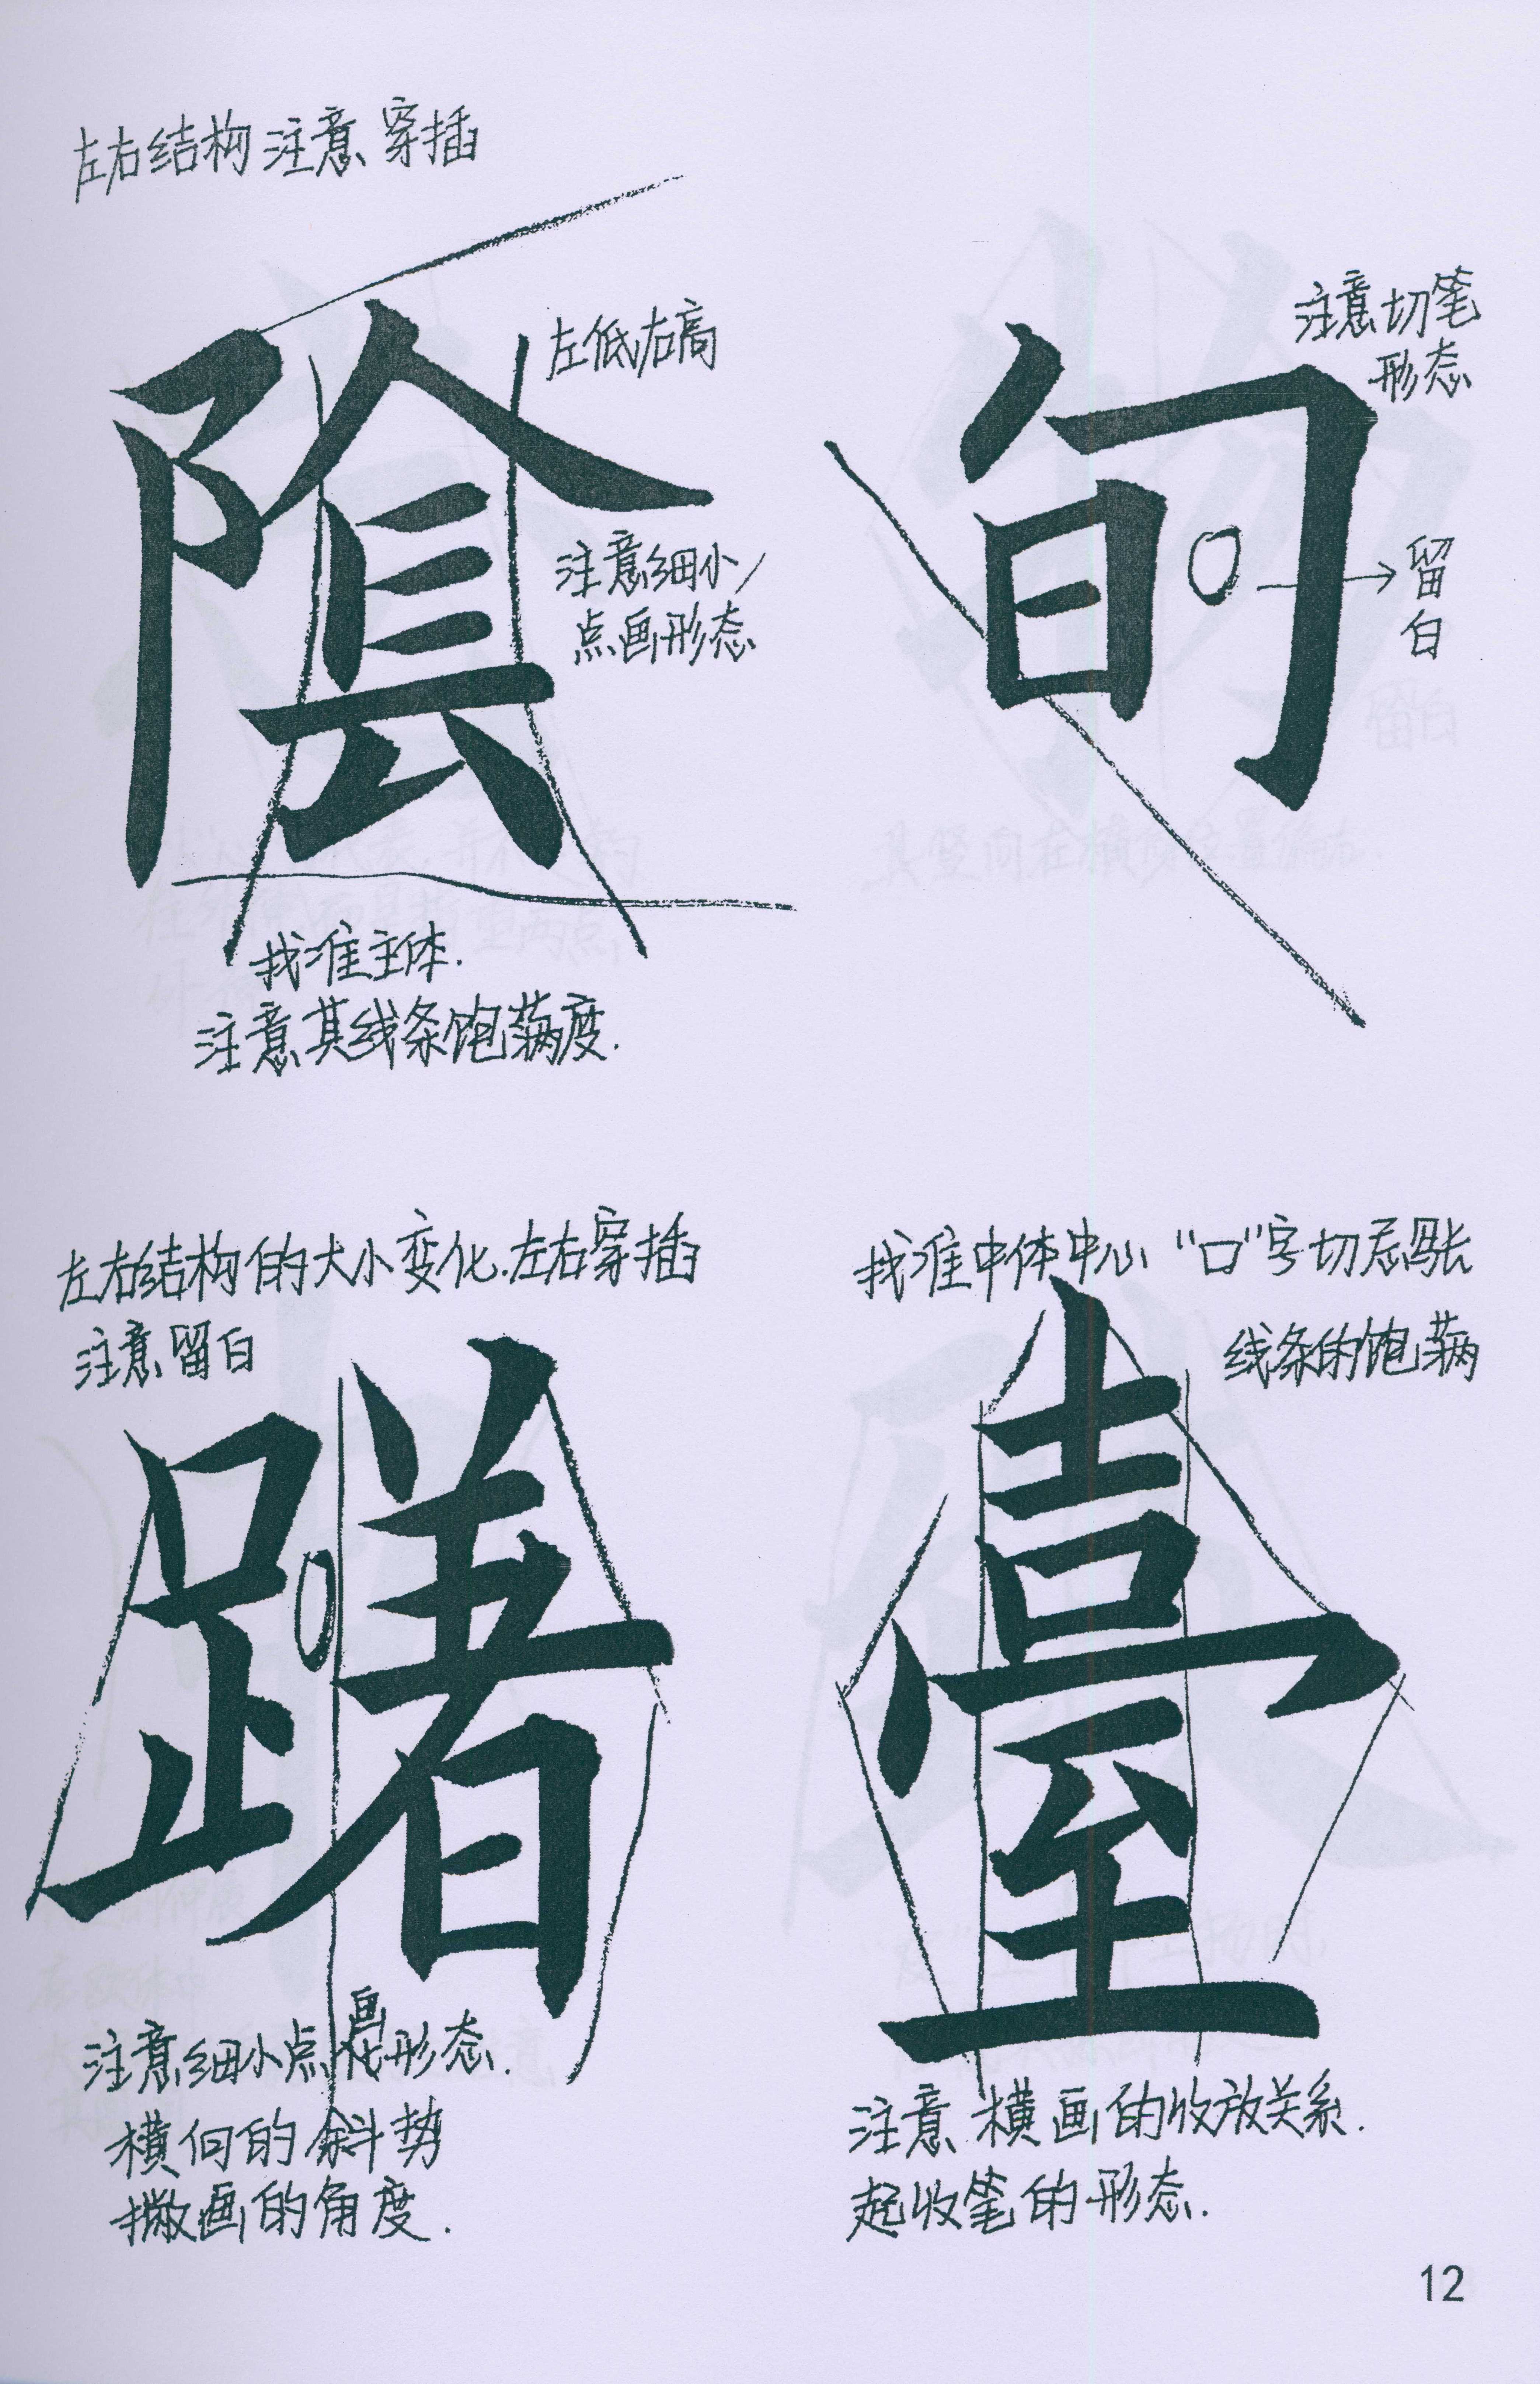 左右结构注意穿插
陰
左低右高
注意细小
点画形态
找准主体.
注意其线条饱满度.
旬
注意切笔
形态
留
白
左右结构的大小变化.左右穿插
注意留白
躇
注意细小点画形态.
横向的斜势
撇画的角度.
找准中体中心 “口”字切忌写长
线条的饱满
臺
注意横画的收放关系.
起收笔的形态.
12